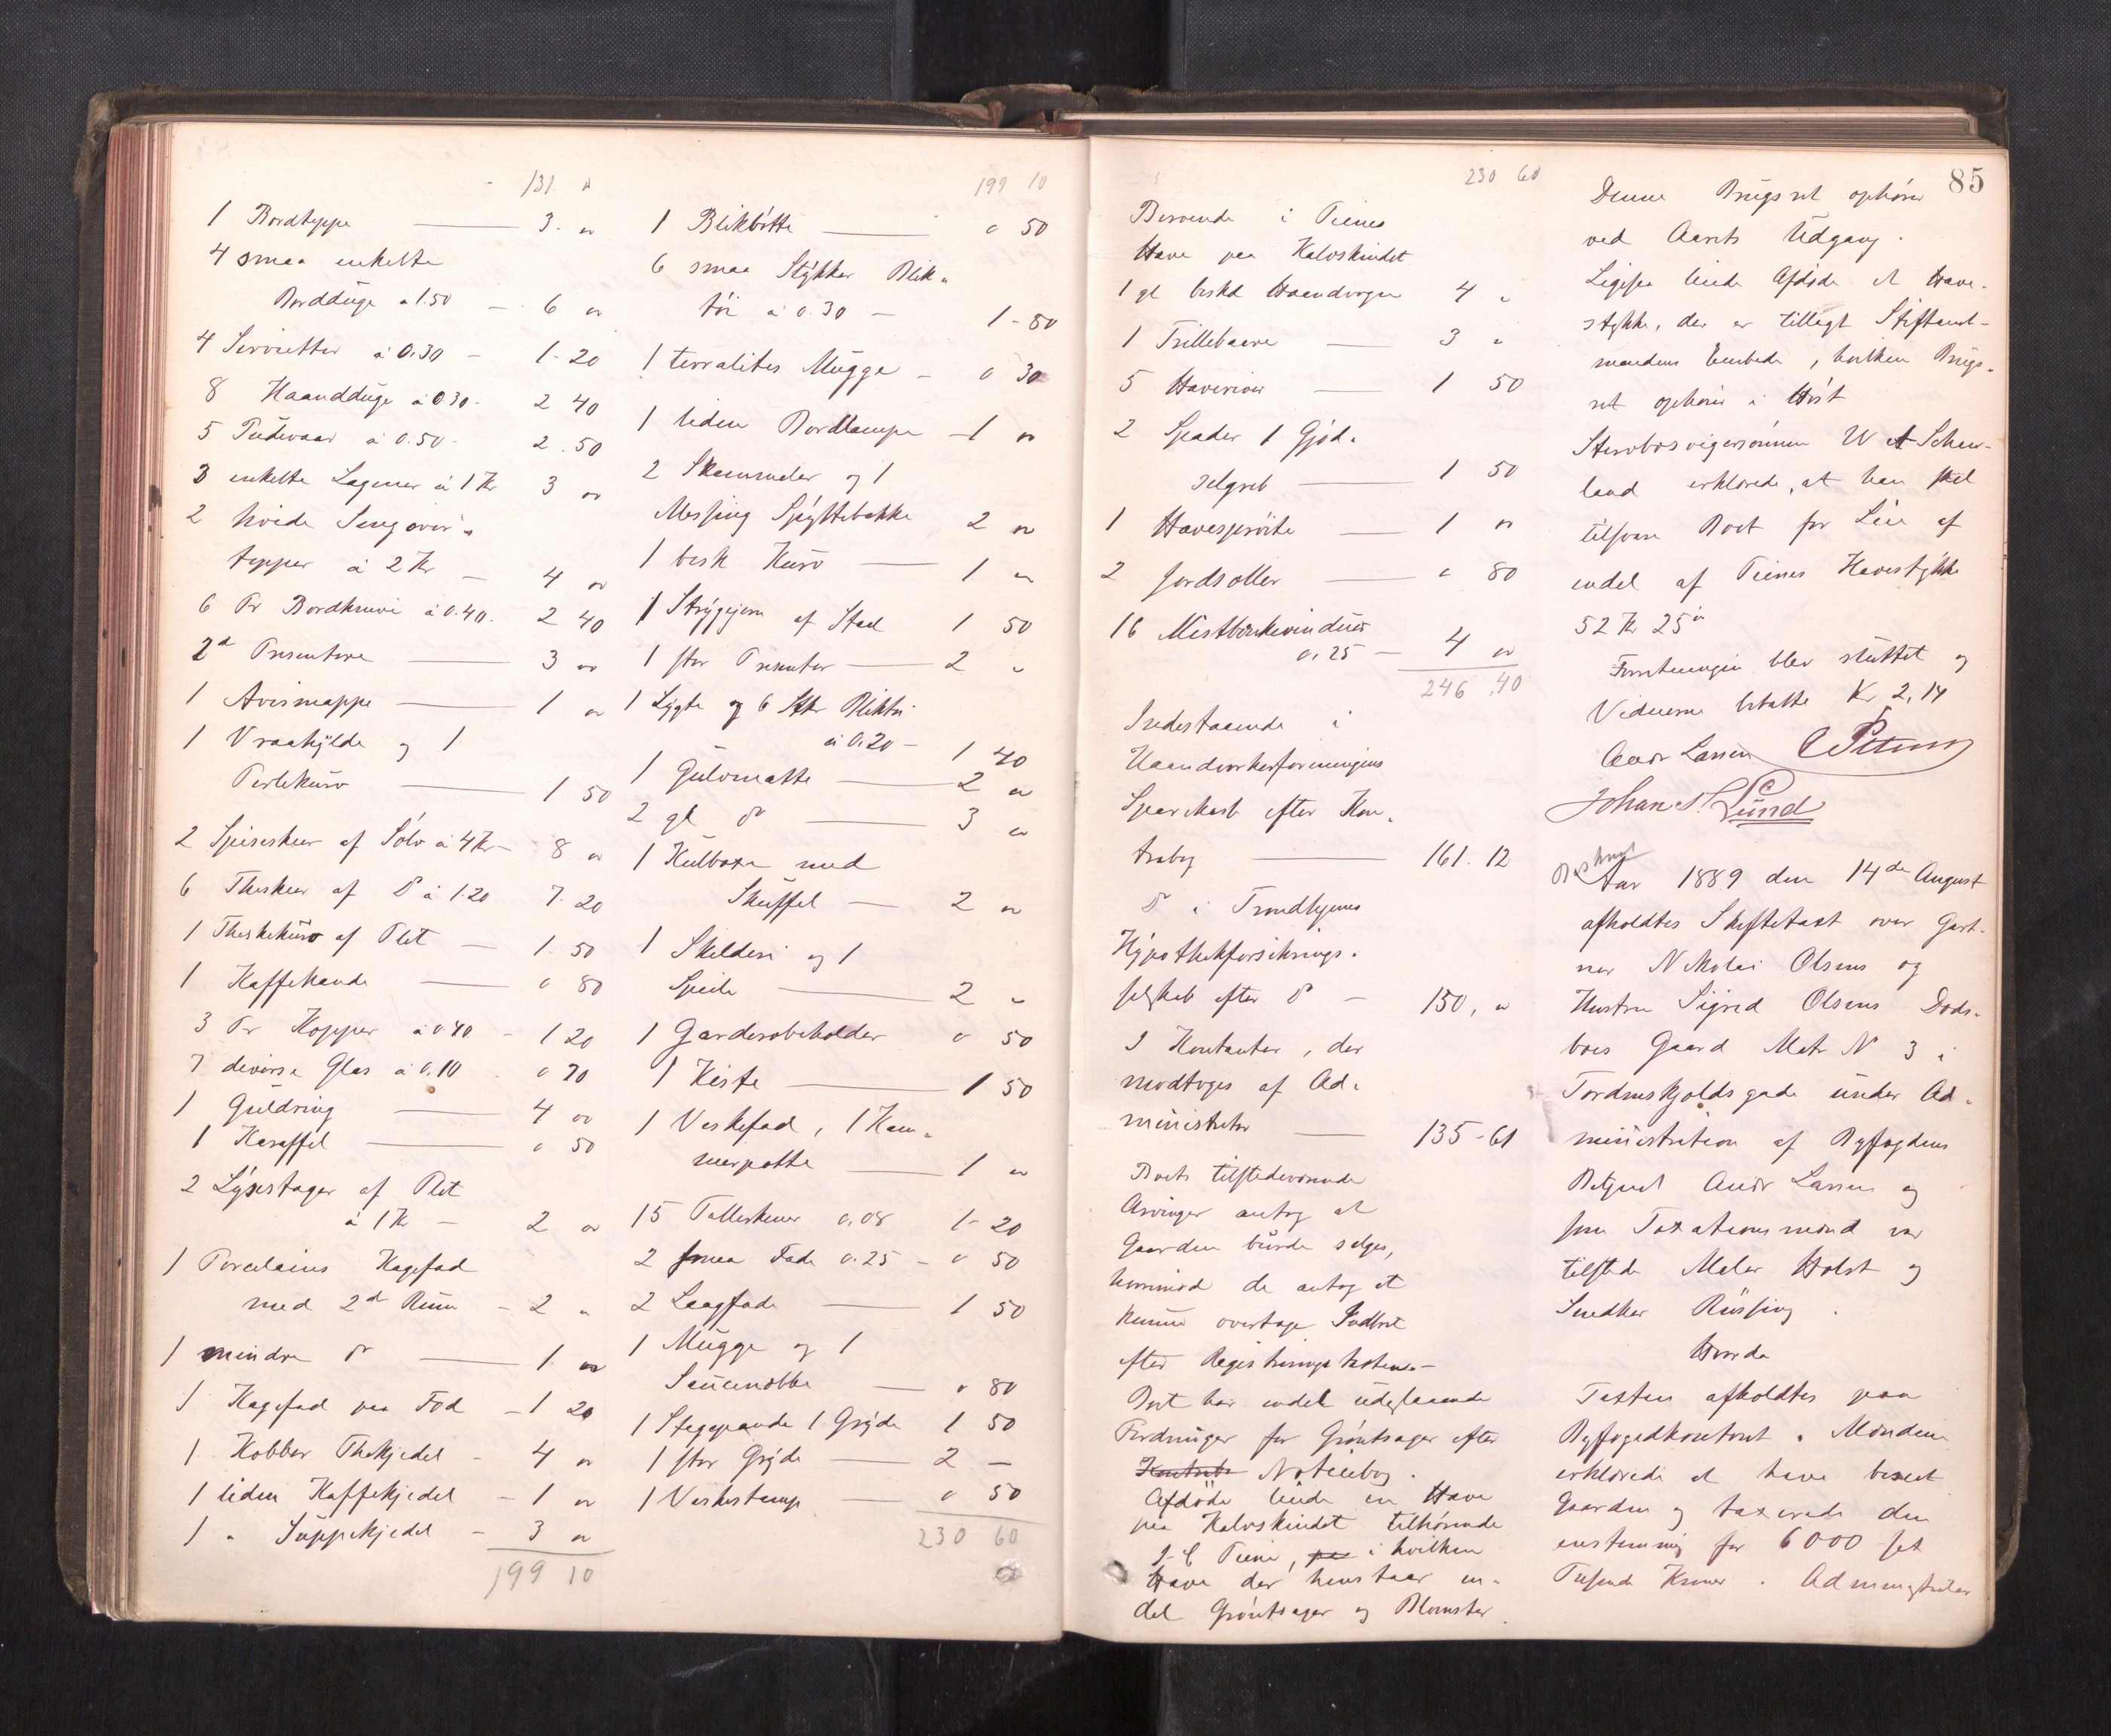 131 "
1 Bordteppe 3. "
4 smaa enkelte
Borddúge a 1.50 - 6 "
4 Servietter à 0.30 - 1-20
8 Haanddúge à 0 30- 2 40
5 Púdevaar à 0.50- 2.50
3 enkelte Lagener à 1 Kr 3 "
2 hvide Sengover-
tepper à 2 Kr - 4 "
6 Pr Bordknive à 0.40. 2 40
2d Presentere 3 "
1 Avismappe 1 "
1 Vraahylde og 1
Perlekúrv 1 50
2 Spiseskeer af Sölv à 4 Kr - 8 "
6 Theskeer af do à 1 20 7. 20
1 Theskekúrv af Plet - 1. 50
1 Kaffekande " 80
3 Pr Kopper à 0.40 - 1 20
7 diverse Glas à 0.10 . " 70
1 Gúldring 4 "
1 Karaffel " 50
2 Lysestager af Plet
à 1 Kr - 2 "
1 Porcelains Kagefad
med 2d Rúm - 2 "
1 mindre do 1. "
1 Kagefad paa Fod - 1 20
1 Kobber Thekjedel - 4 "
1 liden Kaffekjedel - 1 "
1 " Súppekjedel - 3 "
199 10
199 10
1 Blikbötte " 50
6 smaa Stykker Blik-
töi à 0.30 - 1-80
1 terralites Múgge - " 30
1 liden Bordlampe - 1 "
2 Skamruder og 1
Messing Spyttebakke 2 "
1 besk Kurv 1 "
1 Strygejern af Staal 1 50
1 stor Presenter 2 "
1 Lygte og 6 Stkr Bliktöi
à 0.20 - 1 40
1 Gúlvmatte 2 "
2 gl do 3 "
1 Kúlboxe med
Skúffel - 2 "
1 Skilderi og 1
Speile 2 "
1 Garderobeholder " 50
1 Kiste 1 50
1 Vaskefad, 1 Kam-
merpotte 1 "
15 Tallerkener 0.08 1-20
2 smaa Fade 0.25 - " 50
2 Laagfade 1 50
1 Múgge og 1
Saucenebbe " 80
1 Stegepande 1 Gryde 1 50
1 stor Gryde 2 -
1 Vaskestamp " 50
230 60
85
230 60
Beroende i Pienes
Have paa Kalvskindet
1 gl beskd Haandvogn 4 "
1 Trillebaare 3 "
5 Haveriver 1 50
2 Spader 1 Gjöd-
selgreb 1 50
1 Havespröite 1 "
2 Jordsoller " 80
16 Mistbænkvindúer
0.25 - 4 "
246.40
Indestaaende i
Haandverkerforeningens
Sparekasse efter Kon-
trabog 161. 12
do i Trondhjems
Hypothekforsikrings-
selskab efter do - 150, "
I Kontanter, der
modtoges af Ad-
ministrator 135-61
Boets tilstedeværende
Arvinger antog at
Gaarden búrde selges,
hvorimod de antog at
kunne overtage Indboet
efter Registreringstaxten.-
Boet har endel údestaaende
Fordringer for Gröntsager efter
Kontrab Noticebog.
Afdöde leiede en Have
paa Kalvskindet tilhörende
J. C Piene, paa i hvilken
Have der henstaar en-
del Gröntsager og Blomster.
Denne Brugsret ophörer
ved Aarets Udgang.
Ligesaa leiede Afdöde et Have-
stykke, der er tillagt Stiftamt-
mandens Embede, hvilken Brugs-
ret ophörer i Höst
Stervbosvigersönnen W A Schau-
land erklærede, at han skal
tilsvare Boet for Leie af
endel af Pienes Havestykke
52 Kr 25 ö
Forretningen blev slúttet og
Vidnerne betalte Kr 2,14
Andr Larsen
Johan Lúnd
Aar 1889 den 14de August
afholdtes Skiftetaxt over Gart-
ner Nikolai Olsens og
Hustru Sigrid Olsens Döds-
boes Gaard Matr No 3 i
Tordenskjoldsgade únder Ad-
ministration af Byfogdens
Betjent Andr Larsen og
som Taxationsmænd var
tilstede Maler Holst og
Snedker Rússing.
Hvorda
Taxten afholdtes paa
Byfogedkontoret. Mændene
erklærede at have beseet
Gaarden og taxerede den
enstemmig for 6000 sex
Túsende Kroner. Administrator